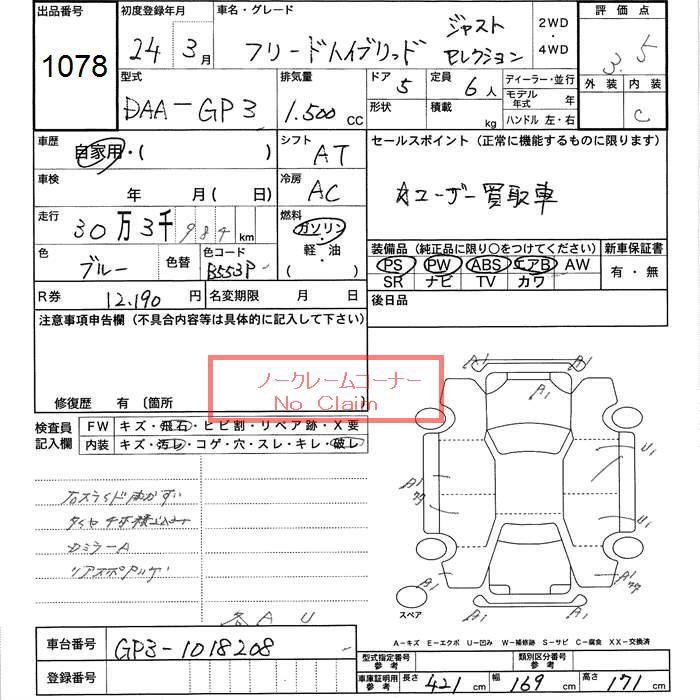 出品番号 初度登録年月 車名・グレード 評価点
1078
24年 3月 フリードハイブリッド ジャスト セレクション 2WD・4WD 3.5
型式 排気量 ドア 定員 ディーラー・並行 外装 内装
DAA-GP3 1.500 CC 5 6人 モデル年式 年 C
形状 積載 kg ハンドル 左・右
車歴 シフト セールスポイント (正常に機能するものに限ります)
自家用・( ) AT
車検 年 月( 日) 冷房 AC ユーザー買取車
走行 30万3千984km 燃料 ガソリン・軽・油 ( )
色 ブルー 色替 色コード B553P 装備品 (純正品に限り○をつけてください) 新車保証書
PS PW ABS エアB AW 有・無
SR ナビ TV カワ
R券 12.190円 名変期限 月 日 後日品
注意事項申告欄 (不具合内容等は具体的に記入して下さい)
ノークレームコーナー
No Claim
修復歴 有 (箇所
検査員記入欄 FW キズ・飛石・ヒビ割・リペア跡・X要
内装 キズ・汚レ・コゲ・穴・スレ・キレ・破レ
A1 A1
A1
U1
A1
U1
B1
B1 A1
スペア
ミラーA
A U
A-キズ E-エクボ U-凹み W-補修跡 S-サビ C-腐食 XX-交換済
車台番号 GP3-1018208
登録番号
型式指定番号 参考 類別区分番号 参考
車庫証明用 参考 長さ 421cm 幅 169cm 高さ 171cm